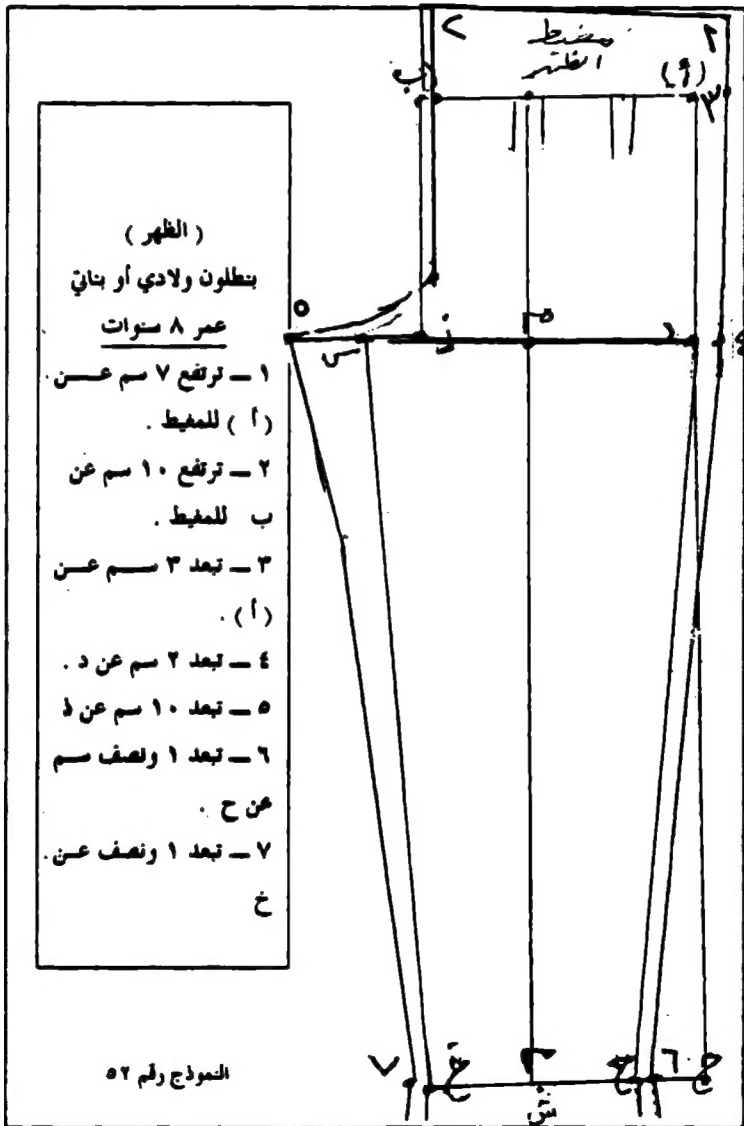 ( الظهر )
بنطلون ولادي أو بناتي
عمر ٨ سنوات
١ ــ ترتفع ٧ سم عــن
( أ ) للمغيط .
٢ ــ ترتفع ١٠ سم عن
ب للمغيط .
٣ ــ تبعد ٣ ســم عــن
( أ ) .
٤ ــ تبعد ٢ سم عن د .
٥ ــ تبعد ١٠ سم عن ذ
٦ ــ تبعد ١ ونصف سم
عن ح .
٧ ــ تبعد ١ ونصف عــن .
خ
النموذج رقم ٥٢
مغيط
الظهر
٢
(أ)
٣
ب
٥
س
ذ
م
د
٤
٧
خ
م
ش
ح
٦